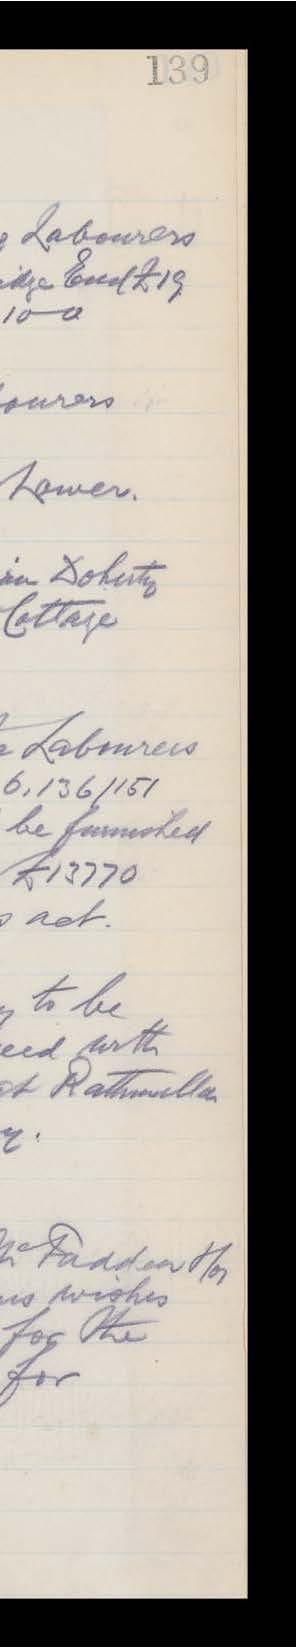 139
g Labourers
idge End £19
10-0
ourers
Lower.
Doherty
Cottage
Labourers
6,136/151
be furnished
£13770
s act.
to be
eed with
at Rathmullan
y.
McFadden Hon
us wishes
for the
for